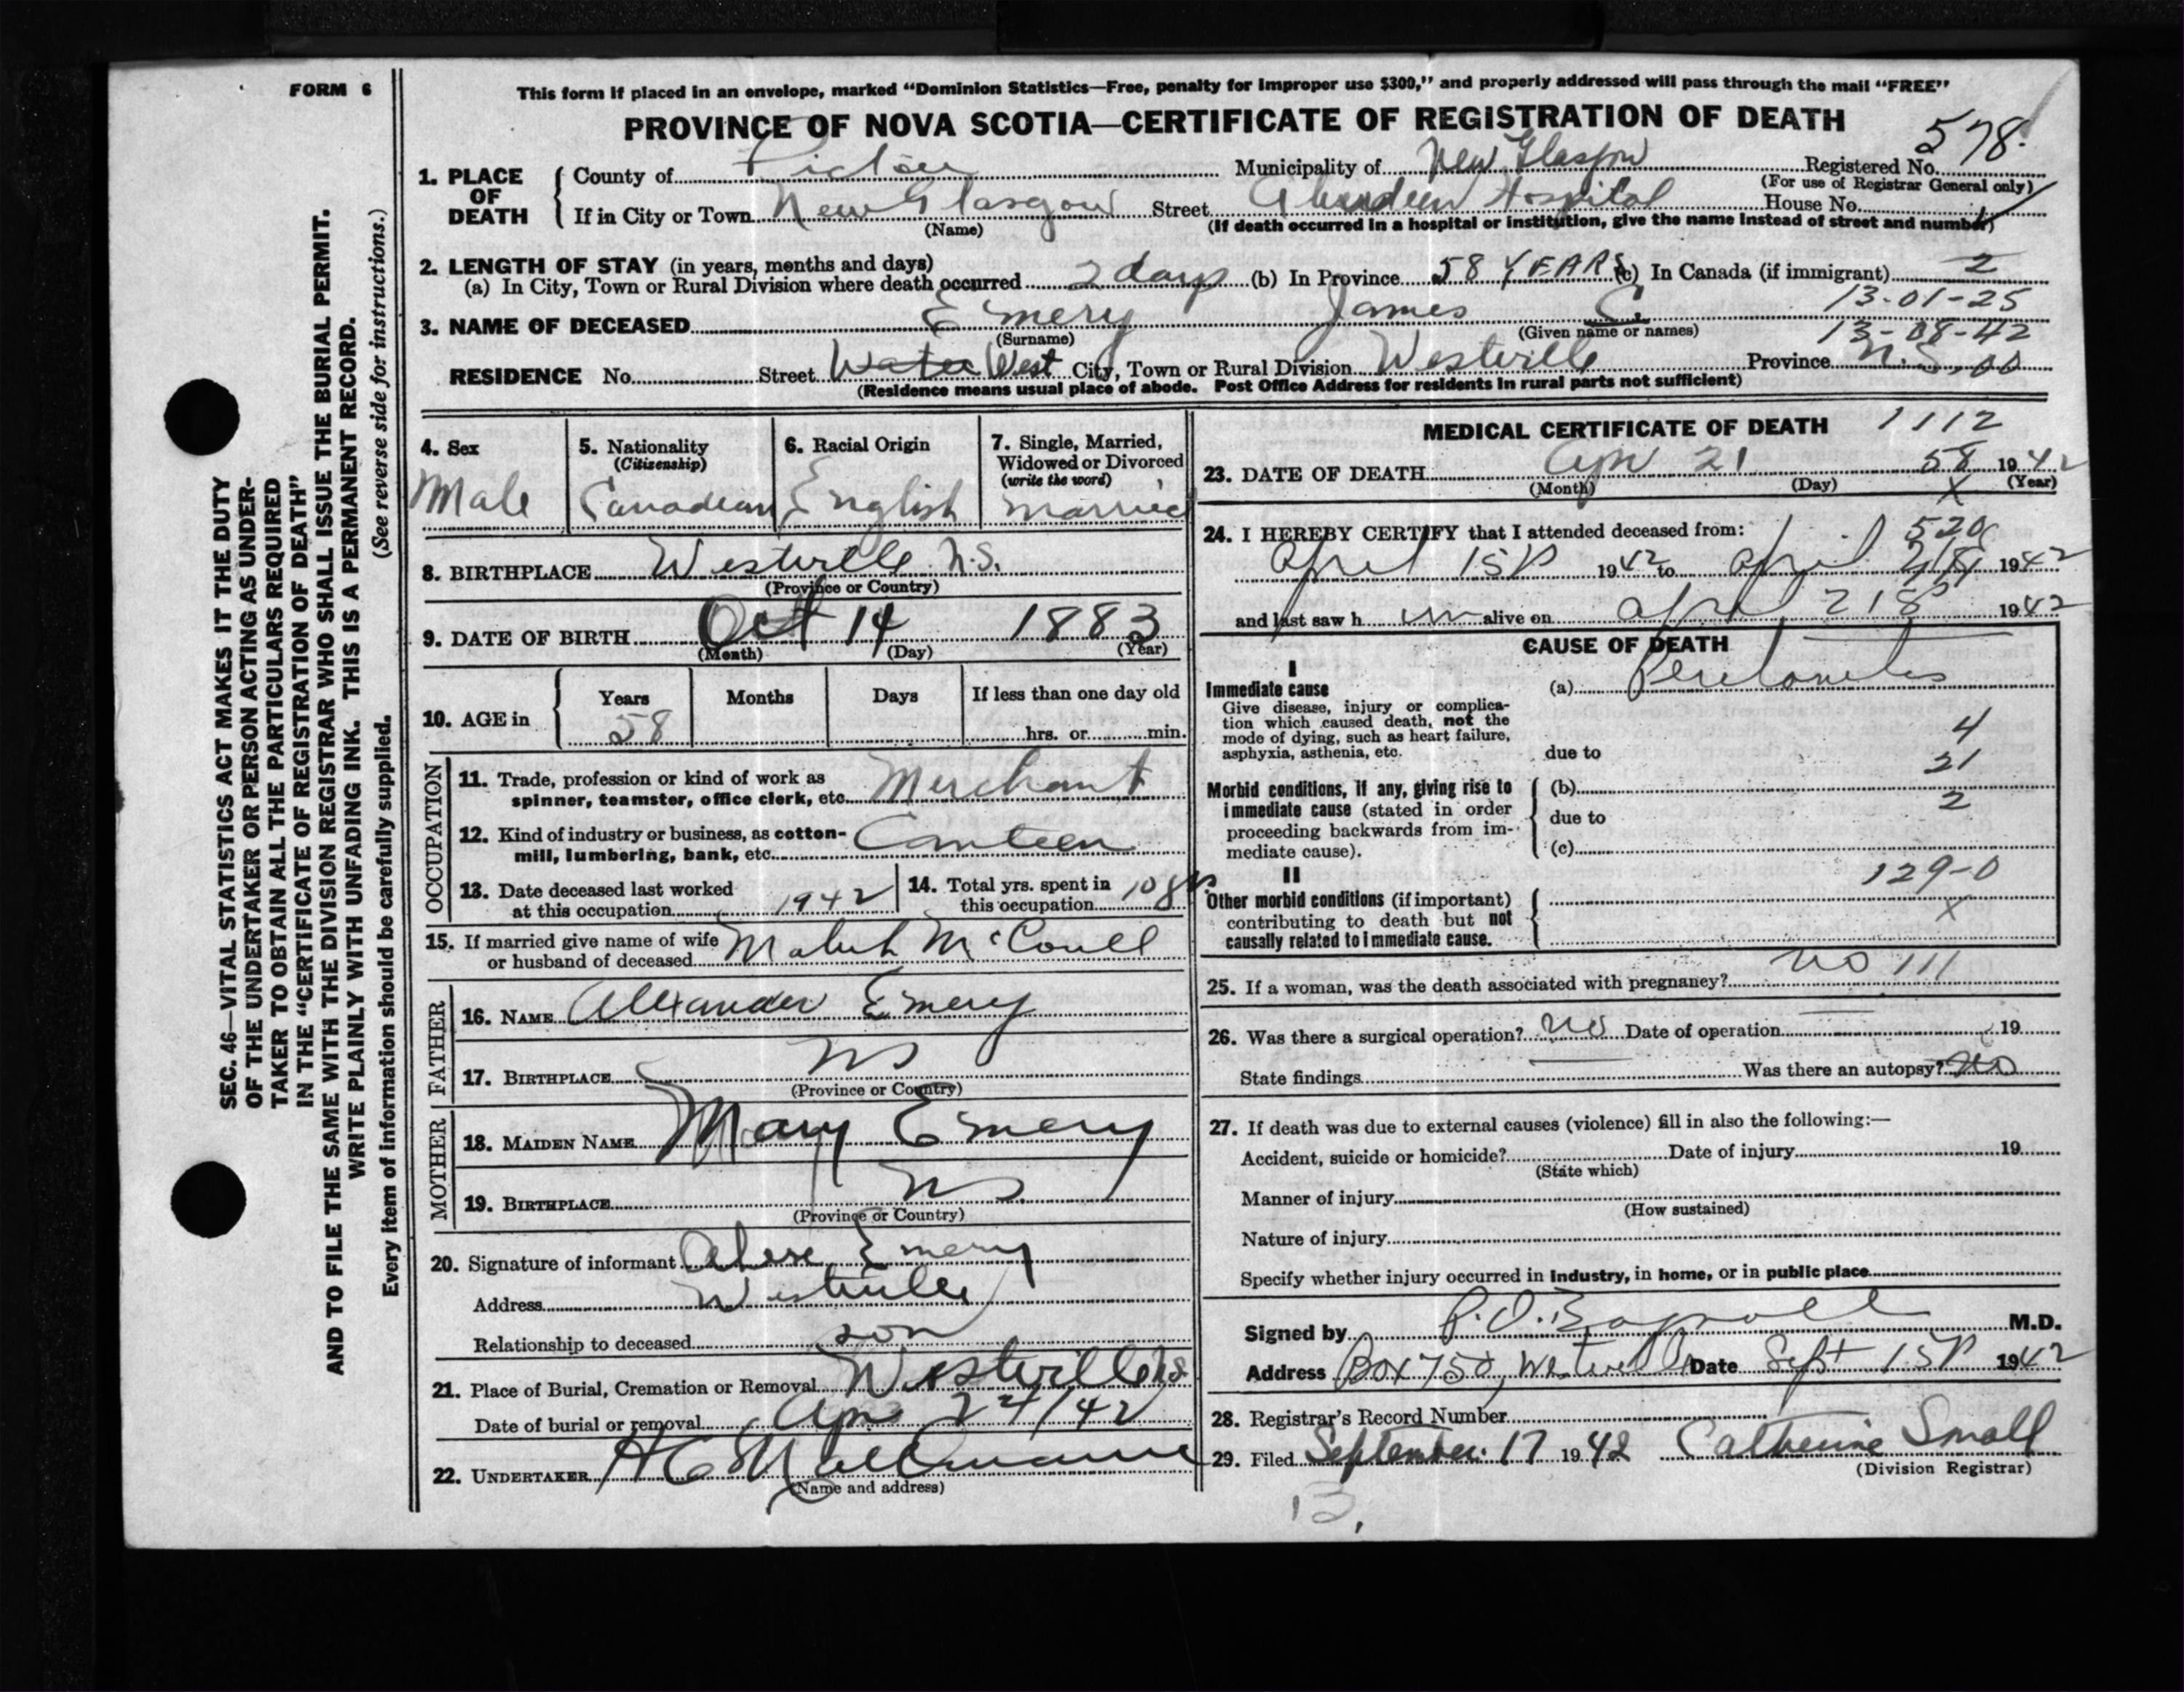 FORM 6
This form if placed in an envelope, marked "Dominion Statistics—Free, penalty for improper use $300," and properly addressed will pass through the mail "FREE"
PROVINCE OF NOVA SCOTIA—CERTIFICATE OF REGISTRATION OF DEATH
578
1. PLACE OF DEATH { County of Pictou Municipality of New Glasgow Registered No.
(For use of Registrar General only)
If in City or Town New Glasgow Street Aberdeen Hospital House No.
(Name) (If death occurred in a hospital or institution, give the name instead of street and number)
2. LENGTH OF STAY (in years, months and days)
(a) In City, Town or Rural Division where death occurred 2 days (b) In Province 58 YEARS (c) In Canada (if immigrant) 2
13-01-25
3. NAME OF DECEASED Emery James C.
(Surname) (Given name or names) 13-08-42
RESIDENCE No. Street Water West City, Town or Rural Division Westville Province N.S. 00
(Residence means usual place of abode. Post Office Address for residents in rural parts not sufficient)
4. Sex
Male
5. Nationality
(Citizenship)
Canadian
6. Racial Origin
English
7. Single, Married,
Widowed or Divorced
(write the word)
Married
8. BIRTHPLACE Westville N.S.
(Province or Country)
9. DATE OF BIRTH Oct 14 1883
(Month) (Day) (Year)
10. AGE in { Years Months Days If less than one day old
58 hrs. or min.
OCCUPATION
11. Trade, profession or kind of work as
spinner, teamster, office clerk, etc. Merchant
12. Kind of industry or business, as cotton-
mill, lumbering, bank, etc. Canteen
13. Date deceased last worked
at this occupation 1942
14. Total yrs. spent in
this occupation 10
15. If married give name of wife
or husband of deceased
FATHER
16. NAME Alexander Emery
17. BIRTHPLACE NS
(Province or Country)
MOTHER
18. MAIDEN NAME Mary Emery
19. BIRTHPLACE NS
(Province or Country)
20. Signature of informant Emery
Address Westville
Relationship to deceased son
21. Place of Burial, Cremation or Removal Westville NS
Date of burial or removal Apr 24/42
22. UNDERTAKER
(Name and address)
MEDICAL CERTIFICATE OF DEATH 1112
23. DATE OF DEATH Apr 21 58 1942
(Month) (Day) X (Year)
24. I HEREBY CERTIFY that I attended deceased from: 520
April 15 1942 to April 21 1942
and last saw h im alive on April 21 1942
CAUSE OF DEATH
I
Immediate cause
Give disease, injury or complica-
tion which caused death, not the
mode of dying, such as heart failure,
asphyxia, asthenia, etc.
(a) Peritonitis
4
due to
21
Morbid conditions, if any, giving rise to
immediate cause (stated in order
proceeding backwards from im-
mediate cause).
(b)
2
due to
(c)
II
129-0
Other morbid conditions (if important)
contributing to death but not
causally related to immediate cause.
X
25. If a woman, was the death associated with pregnancy? no 111
26. Was there a surgical operation? no Date of operation 19
State findings Was there an autopsy? no
27. If death was due to external causes (violence) fill in also the following:—
Accident, suicide or homicide? Date of injury 19
(State which)
Manner of injury
(How sustained)
Nature of injury
Specify whether injury occurred in industry, in home, or in public place
Signed by M.D.
Address Box 750, Westville Date Sept 15 1942
28. Registrar's Record Number
29. Filed September 17 1942 Catherine Small
(Division Registrar)
13.
SEC. 46—VITAL STATISTICS ACT MAKES IT THE DUTY
OF THE UNDERTAKER OR PERSON ACTING AS UNDER-
TAKER TO OBTAIN ALL THE PARTICULARS REQUIRED
IN THE "CERTIFICATE OF REGISTRATION OF DEATH"
AND TO FILE THE SAME WITH THE DIVISION REGISTRAR WHO SHALL ISSUE THE BURIAL PERMIT.
WRITE PLAINLY WITH UNFADING INK. THIS IS A PERMANENT RECORD.
(See reverse side for instructions.)
Every item of information should be carefully supplied.